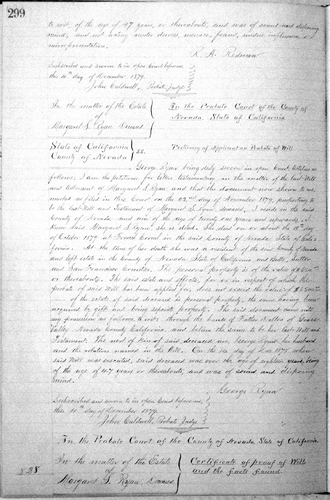 299
to wit, of the age of 47 years, or thereabouts, and was of sound and disposing
mind, and not acting under duress, menace, fraud, undue influence, or
misrepresentation.
R. H. Redman
Subscribed and sworn to in open Court before me
this 10th day of December 1879.
John Caldwell, Probate Judge
In the matter of the Estate
of
Margaret J. Ryan Deceased
In the Probate Court of the County of
Nevada State of California
State of California
County of Nevada
ss.
Testimony of Applicant on Probate of Will
George Ryan being duly sworn in open Court, testifies as
follows, I am the petitioner for letters testamentary in the matter of the last Will
and testament of Margaret J. Ryan, and that the document now shown to me
marked as filed in this Court on the 22nd day of November 1879, purporting to
be the last Will and Testament of Margaret J. Ryan deceased, I reside in the said
County of Nevada, and am of the age of twenty one years and upwards. I
knew said Margaret J. Ryan. She is dead. She died on or about the 18th day
of October 1879 at in the said County of Nevada State of Cali-
fornia. At the time of her death she was a resident of the said County of Nevada
and left estate in the County of Nevada State of California and Butte, Sutter
and San Francisco Counties. The personal property is of the value of
or thereabouts. The said estate and effects, for or in respect of which the
probate of said Will has been applied for, does not exceed the value of
of the estate of said deceased is personal property, the same having been
acquired by gift and being separate property. The said document came into
my possession as follows to wit: through the hands of of Grass
Valley Nevada County California, and believe the same to be her last Will and
Testament. The next of kin of said deceased are, George Ryan her husband
and the relatives named in the Will. On the day of 1879 when
said Will was executed, said deceased was over the age of eighteen years, being
of the age of 47 years or thereabouts, and was of sound and disposing
mind.
George Ryan
Subscribed and sworn to in open Court before me,
this 10th day of December 1879.
John Caldwell, Probate Judge
In the Probate Court of the County of Nevada State of California
In the matter of the Estate
of
Margaret J. Ryan, Deceased
Certificate of proof of Will
and the facts found